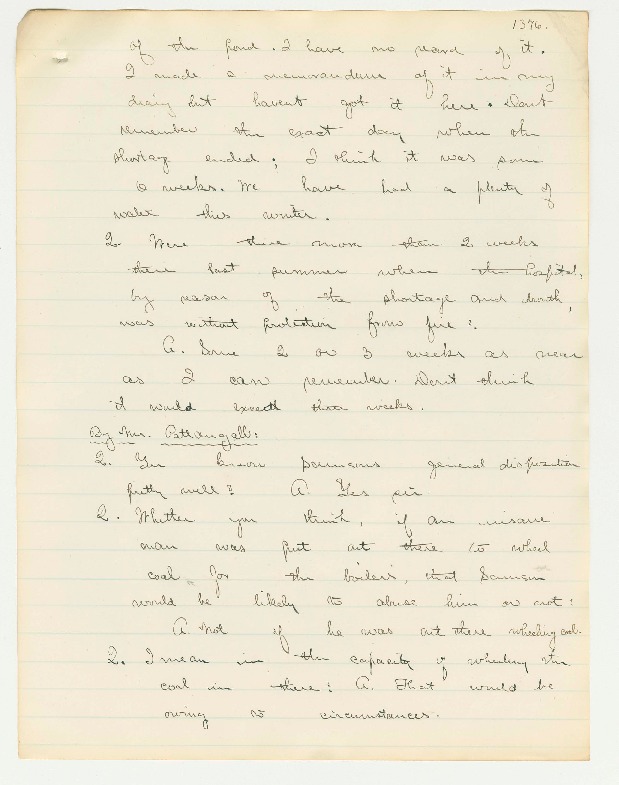 1376.
of the pond. I have no record of it.
I made a memorandum of it in my
diary but havent got it here. Dont
remember the exact day when the
shortage ended; I think it was some
6 weeks. We have had a plenty of
water this winter.
Q. Were there more than 2 weeks
there last summer when the Hospital,
by reason of the shortage and drouth,
was without protection from fire?
A. Some 2 or 3 weeks as near
as I can remember. Dont think
it would exceed three weeks.
By Mr. Pattangall:
Q. You know general disposition
pretty well? A. Yes sir
Q. Whether you think, if an insane
man was put out there to wheel
coal for the boilers, that
would be likely to abuse him or not?
A. Not if he was out there wheeling coal.
Q. I mean in the capacity of wheeling the
coal in there? A. That would be
owing to circumstances.